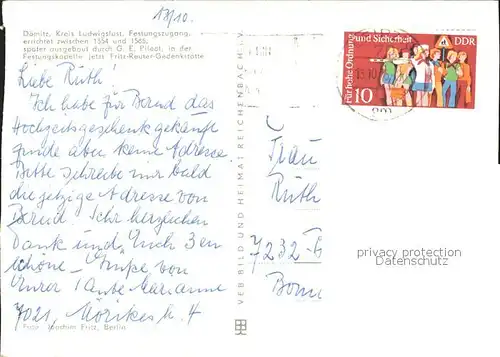 18/10.
Dömitz, Kreis Ludwigslust, Festungszugang,
errichtet zwischen 1554 und 1565,
später ausgebaut durch G. E. Piloot, in der
Festungskapelle jetzt Fritz-Reuter-Gedenkstätte
Liebe Ruth!
Ich habe für Bernd das
Hochzeitsgeschenk gekauft
finde aber keine Adresse.
Bitte schreibe mir bald
die jetzige Adresse von
Bernd. Sehr herzlichen
Dank und Euch 3en
schöne Grüße von
Eurer Tante Marianne
7021, Mörikestr. 4
Foto: Joachim Fritz, Berlin
VEB BILD UND HEIMAT REICHENBACH I. V.
Für hohe Ordnung und Sicherheit
DDR
10
Frau
Ruth
7232 B
Born
privacy protection
Datenschutz